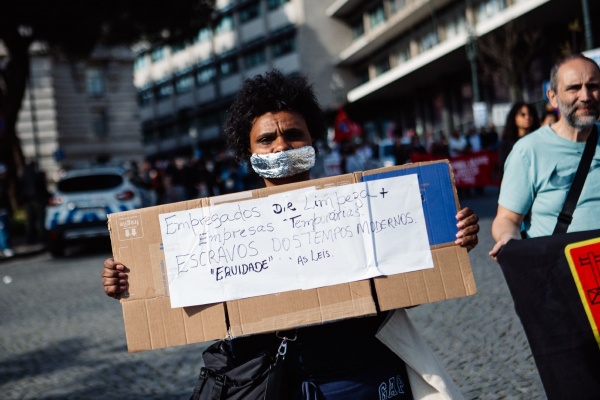 Empregados De Limpeza +
Empresas Temporárias
ESCRAVOS DOS TEMPOS MODERNOS.
"EQUIDADE" AS LEIS.
fragile
GAP